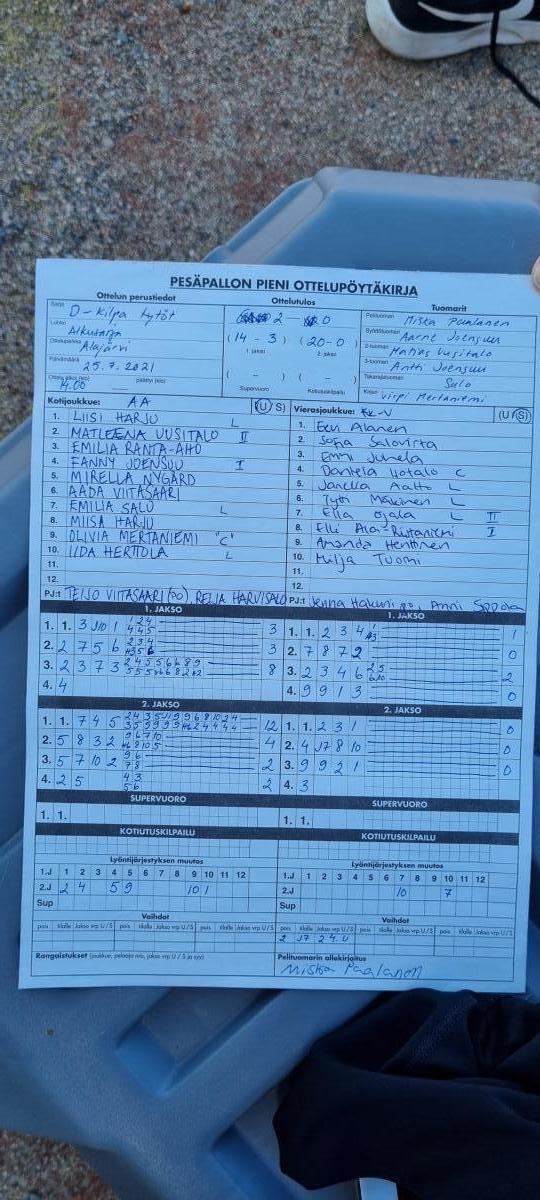 PESÄPALLON PIENI OTTELUPÖYTÄKIRJA
Ottelun perustiedot Ottelutulos Tuomarit
Sarja D-Kilpa tytöt
Lohko Alkusarja
Ottelupaikka Alajärvi
Päivämäärä 25.7.2021
Ottelu alkoi (klo) 14.00 päättyi (klo)
2 - 0
(14 - 3) (20-0)
1. jakso 2. jakso
( - ) (
Supervuoro Kotiutuskilpailu
Pelituomari Miska Paalanen
Syöttötuomari Aarne Joensuu
2-tuomari Matias Uusitalo
3-tuomari Antti Joensuu
Takarajatuomari Salo
Kirjuri Virpi Mertaniemi
Kotijoukkue: AA (U S)
1. LIISI HARJU L
2. MATLEENA UUSITALO II
3. EMILIA RANTA-AHO
4. FANNY JOENSUU I
5. MIRELLA NYGÅRD
6. AADA VIITASAARI
7. EMILIA SALO L
8. MIISA HARJU
9. OLIVIA MERTANIEMI "C"
10. IIDA HERTTOLA L
11.
12.
PJ:t TEIJO VIITASAARI (PO) REIJA HARVISALO
Vierasjoukkue: KK-V (U S)
1. Eevi Alanen
2. Sofia Salovirta
3. Emmi Junela
4. Daniela Hotalo C
5. Janella Aalto L
6. Tytti Mäkinen L
7. Ella Ojala L II
8. Elli Ala-Rantaniemi I
9. Amanda Henttinen
10. Milja Tuomi
11.
12.
PJ:t Jenna Hakuni po, Anni
1. JAKSO
1. 1. 3 J10 1 3
2. 2 7 5 6 3
3. 2 3 7 3 8
4. 4
1. JAKSO
1. 1. 2 3 4 1
2. 7 8 7 2 0
3. 2 3 4 6 2
4. 9 9 1 3 0
2. JAKSO
1. 1. 7 4 5 12
2. 5 8 3 2 4
3. 5 7 10 2 2
4. 2 5 2
2. JAKSO
1. 1. 2 3 1 0
2. 4 J7 8 10 0
3. 9 9 2 1 0
4. 3
SUPERVUORO
1. 1.
SUPERVUORO
1. 1.
KOTIUTUSKILPAILU
KOTIUTUSKILPAILU
Lyöntijärjestyksen muutos
1.J 1 2 3 4 5 6 7 8 9 10 11 12
2.J 2 4 5 9 10 1
Sup
Lyöntijärjestyksen muutos
1.J 1 2 3 4 5 6 7 8 9 10 11 12
2.J 10 7
Sup
Vaihdot
pois tilalle Jakso vrp U / S pois tilalle Jakso vrp U / S pois tilalle Jakso vrp U / S
Vaihdot
pois tilalle Jakso vrp U / S pois tilalle Jakso vrp U / S pois tilalle Jakso vrp U / S
2 J7 2 4. U
Rangaistukset (joukkue, pelaaja nro, jakso vrp U / S ja syy)
Pelituomarin allekirjoitus
Miska Paalanen